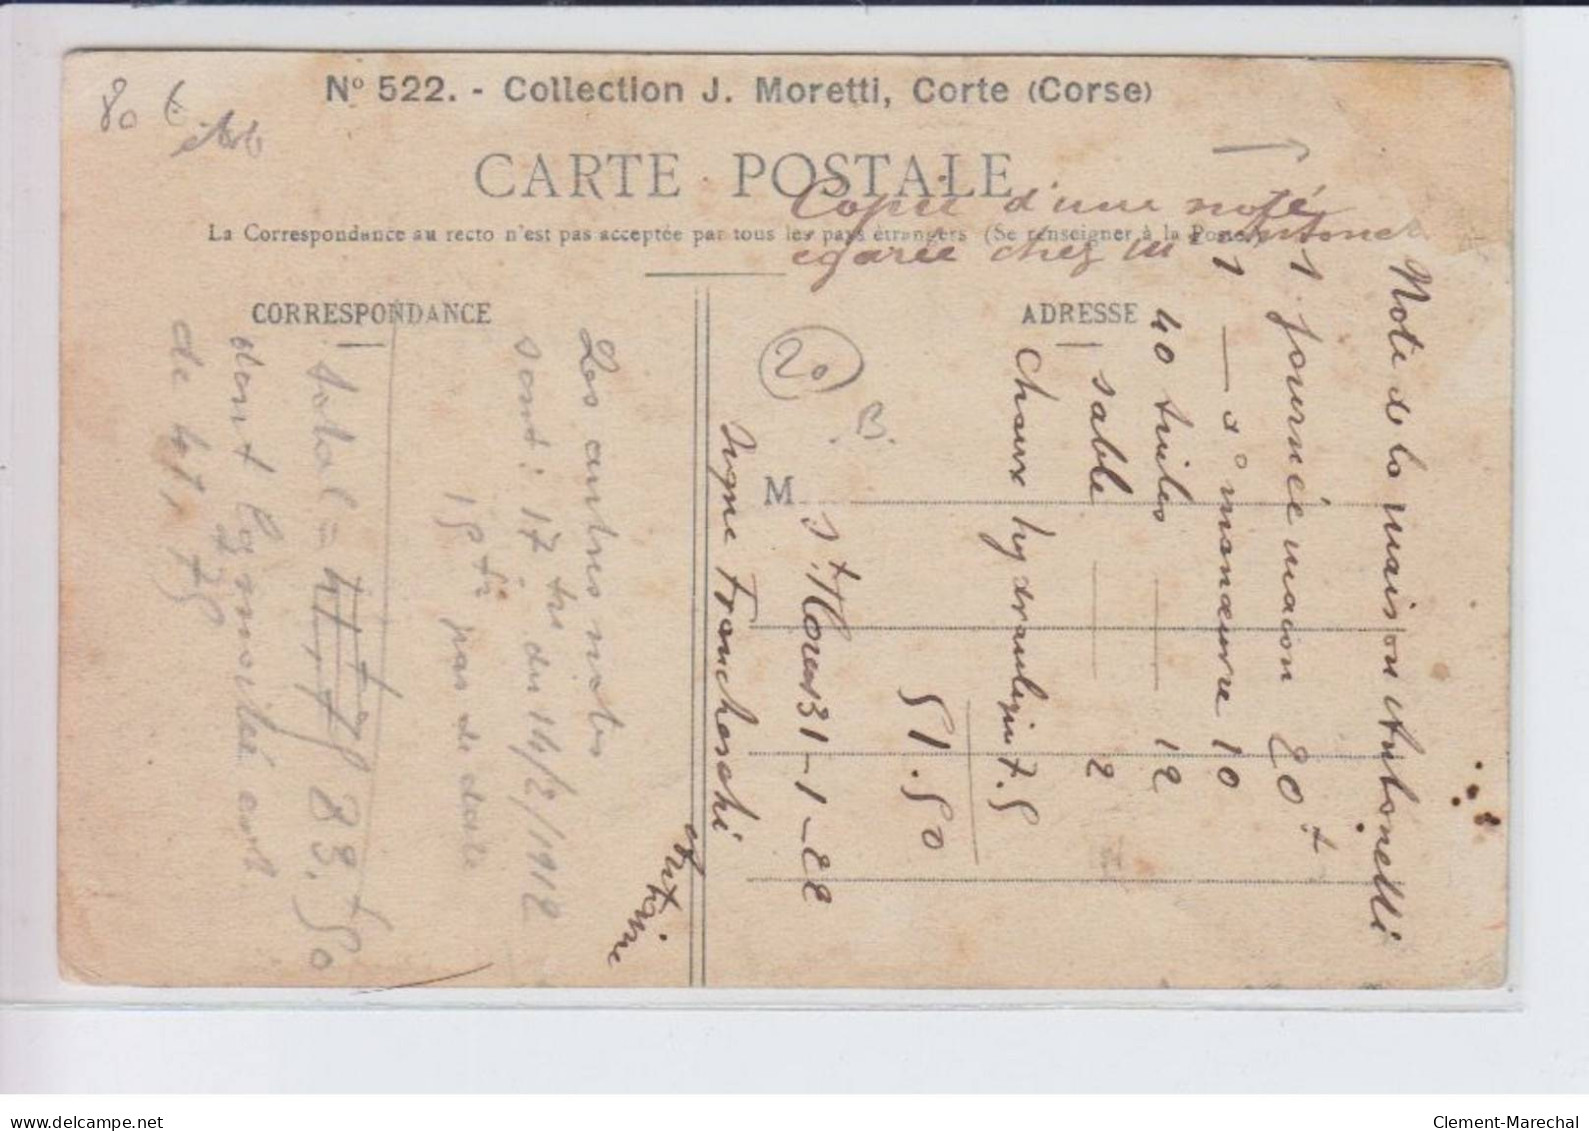 80 €
N° 522. - Collection J. Moretti, Corte (Corse)
CARTE POSTALE
Copie d'une note
égarée chez M Antonelli
La Correspondance au recto n'est pas acceptée par tous les pays étrangers (Se renseigner à la Poste)
CORRESPONDANCE
ADRESSE
M
20
B.
Note de la maison Antonelli
1 journée maçon 20 f
1 — d° manœuvre 10
40 tuiles — 12
sable — 2
Chaux hydraulique 7.5
51.50
St. Florent 31-1-22
Signé Francheschi
Antoine
Les autres notes
sont : 17 frs du 14/2/1912
15 frs pas de date
total = 83.50
dont
de 41,75
delcampe.net
Clement-Marechal